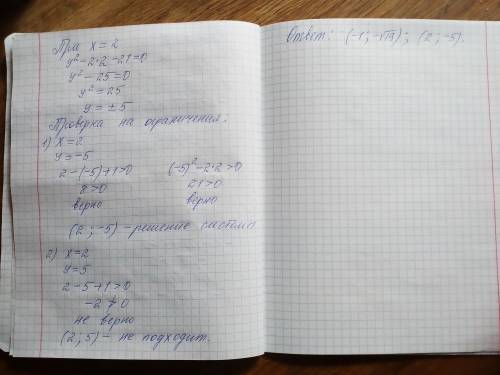 При x = 2
y² - 2·2 - 21 = 0
y² - 25 = 0
y² = 25
y = ± 5
Проверка на ограничения:
1) x = 2
y = -5
2 - (-5) + 1 > 0
8 > 0
верно
(-5)² - 2·2 > 0
21 > 0
верно
(2; -5) - решение системы
2) x = 2
y = 5
2 - 5 + 1 > 0
-2 ≯ 0
не верно
(2; 5) - не подходит.
Ответ: (-1; -√19); (2; -5).